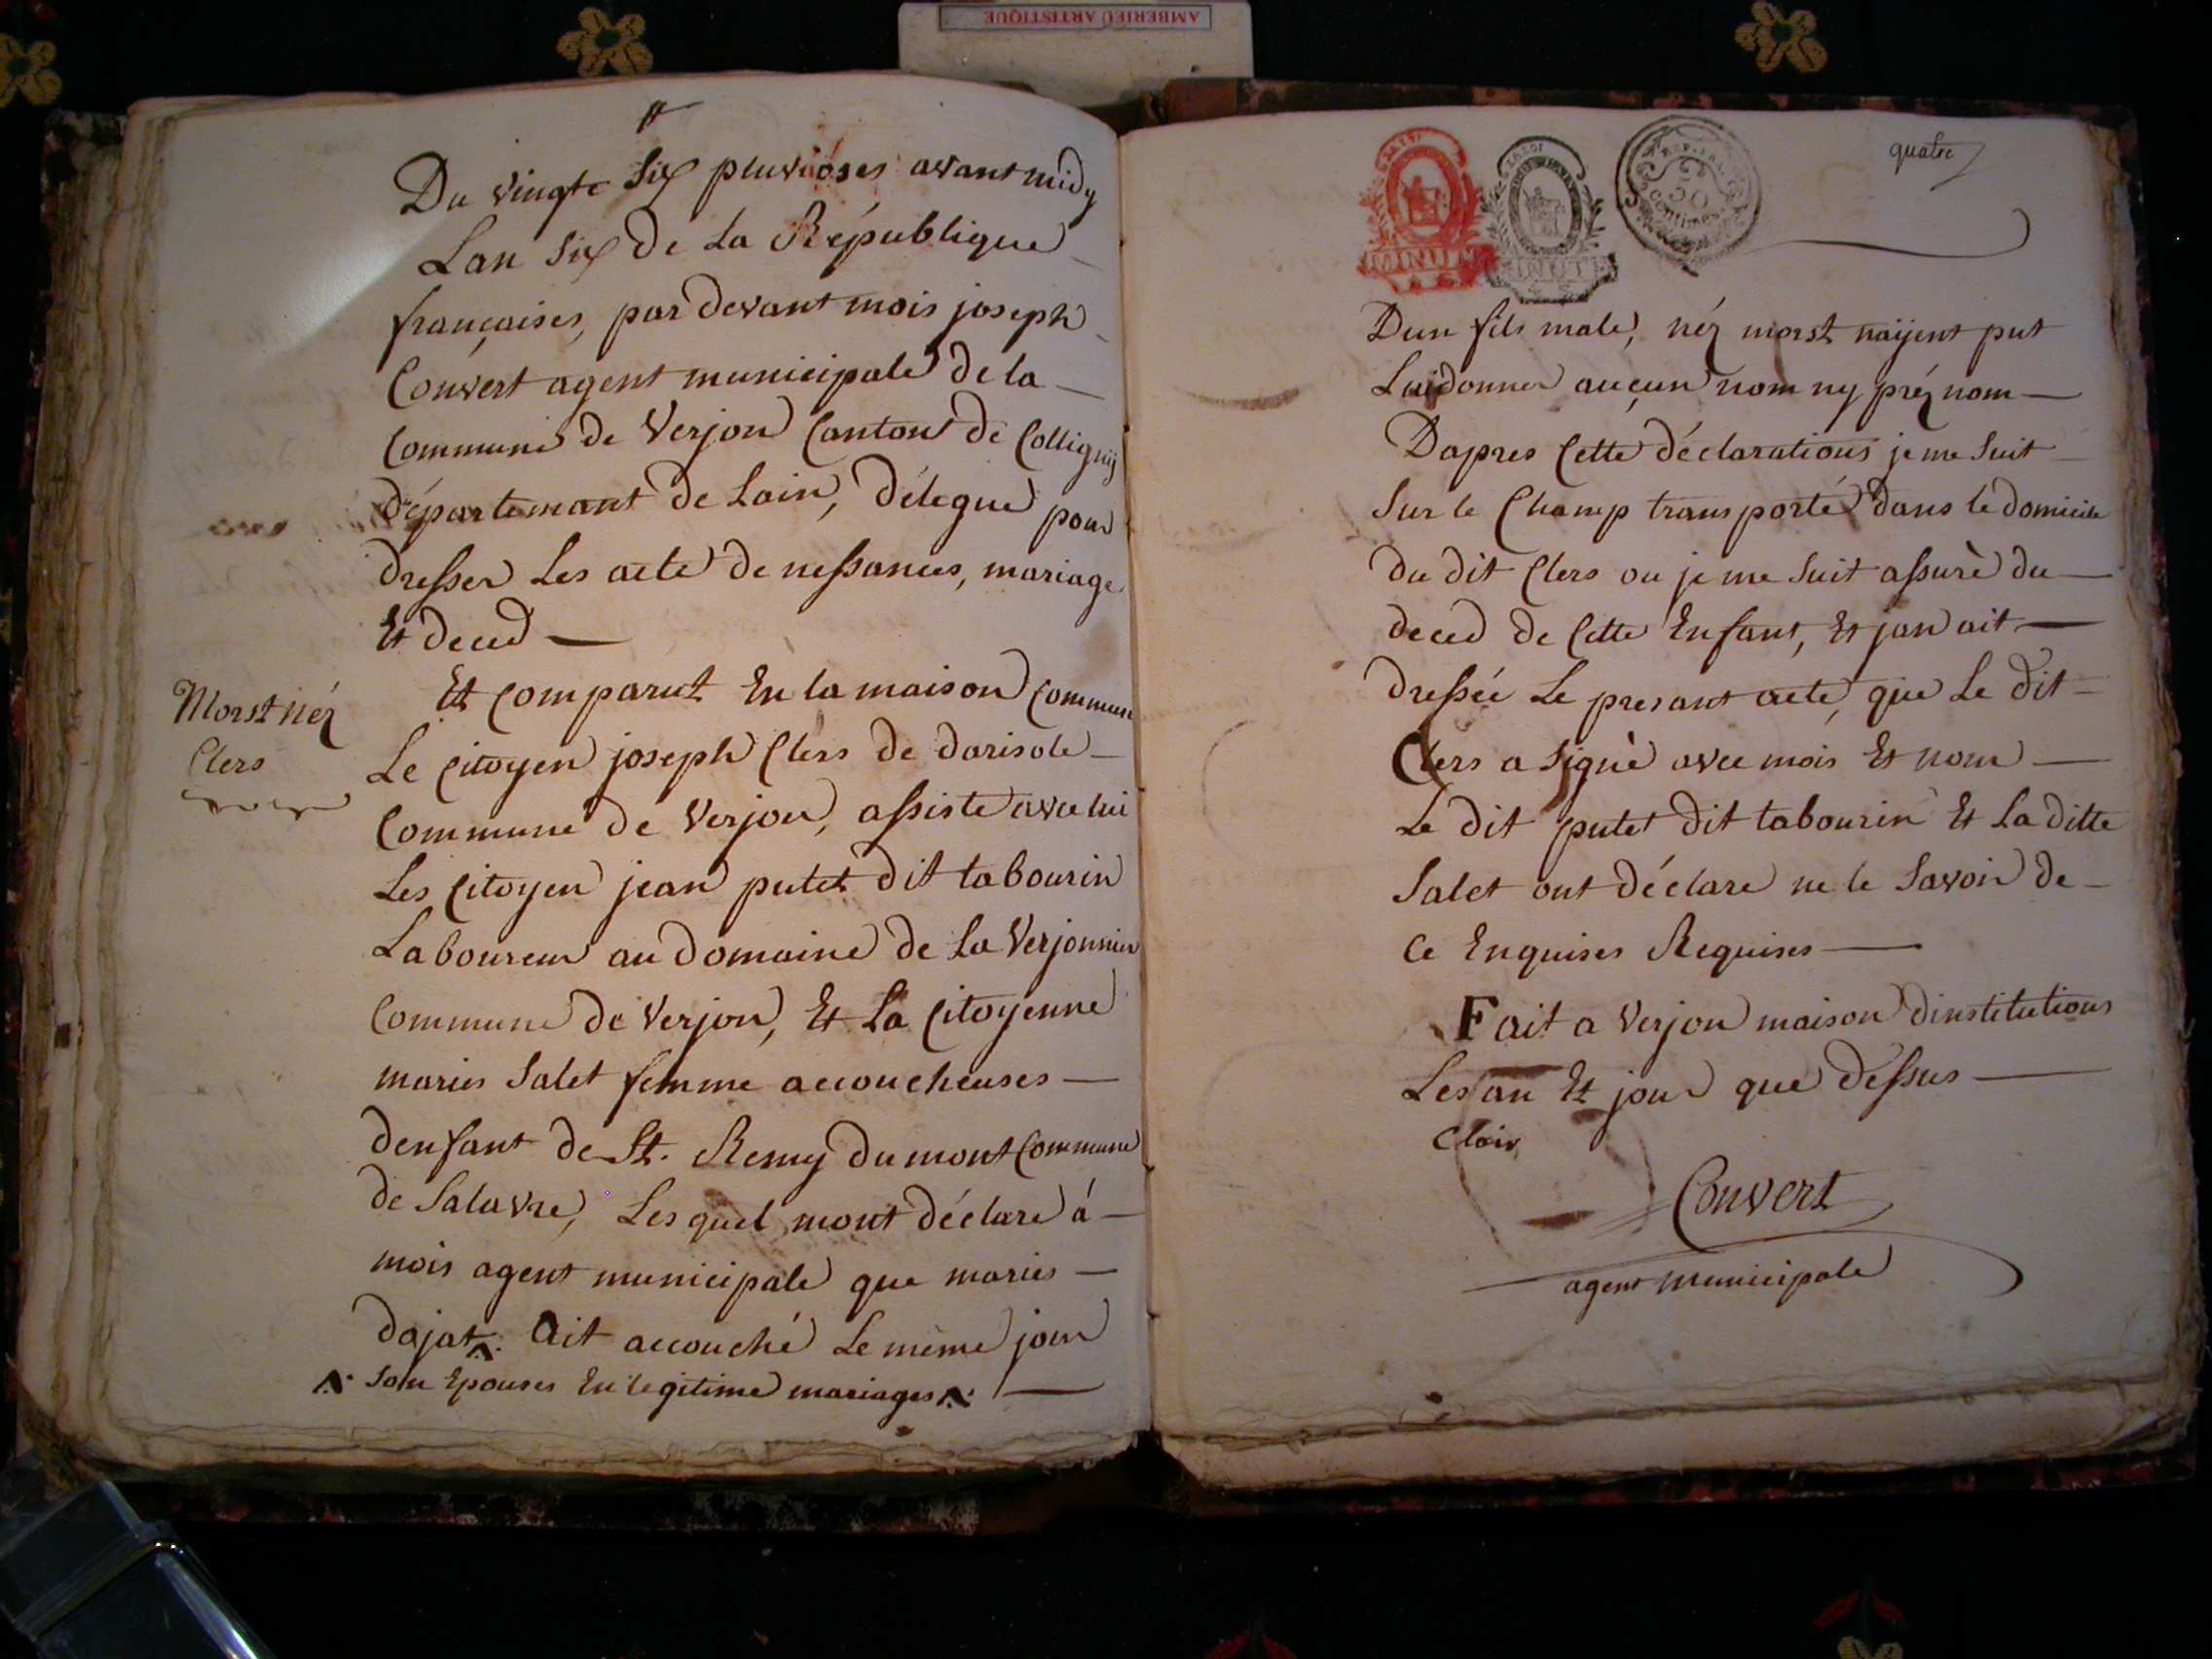 AMBERIEU ARTISTIQUE
Du vingte Six pluvioses avant midy
Lan Six de la République
françaises, par devant mois joseph
Convert agent municipale de la
Commune de Verjon Canton de Colligny
département de Lain, délegue pour
dresser Les acte de nessances, mariage
Et deced
Morst néz
Clers
Et Comparut En la maison Commune
Le Citoyen joseph Clers de darisole
Commune de Verjon, assiste avec lui
Les Citoyen jean putet dit tabourin
Laboureur au domaine de La Verjonnier
Commune de Verjon, Et La Citoyenne
maries Salet femme accoucheuses
denfant de St. Remy du mont Commune
de Salavre, Les quel mont déclare á
mois agent municipale que maries
dajat ait accouché Le même jour
Son Epouses En legitime mariages
quatre
REP. FRA.
50
centimes
MINUTE
MINUTE
Dun fils male, néz morst naÿent put
Luidonner auçun nom ny préz nom
Dapres Cette déclarations je me Suit
Sur le Champ transporté dans le domicile
du dit Clers ou je me Suit assurè du
deced de Cette Enfant, Et jan ait
dressée Le presant acte, que Le dit
Clers a Signè avec mois Et nom
Le dit putet dit tabourin Et La ditte
Salet ont déclare ne le Savoir de
Ce Enquises Requises
Fait a Verjon maison dinstitutions
Les an Et jour que dessus
Clair
Convert
agent municipale